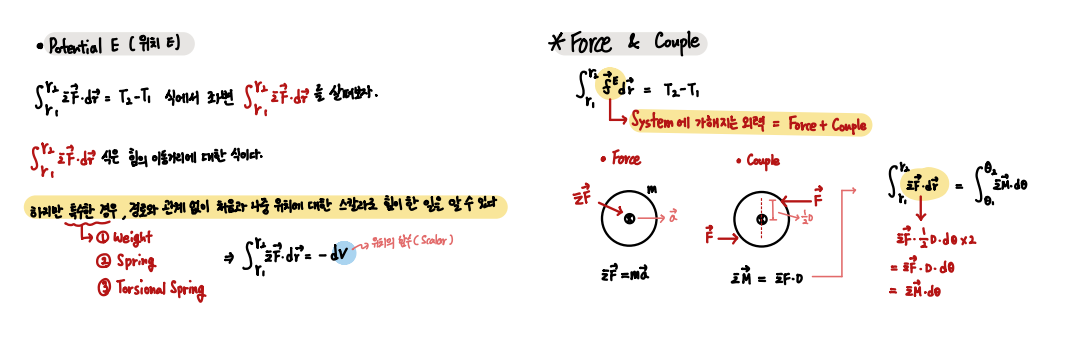 • Potential E ( 위치 E )
∫r₁^r₂ ΣF⃗·dr⃗ = T₂-T₁ 식에서 좌변 ∫r₁^r₂ ΣF⃗·dr⃗ 를 살펴보자.
∫r₁^r₂ ΣF⃗·dr⃗ 식은 힘의 이동거리에 대한 식이다.
하지만 특수한 경우, 경로와 관계 없이 처음과 나중 위치에 대한 스칼라로 힘이 한 일을 알 수 있다
→ ① Weight
② Spring
③ Torsional Spring
⇒ ∫r₁^r₂ ΣF⃗·dr⃗ = - dV → 위치의 함수 ( Scalar )
* Force & Couple
∫r₁^r₂ f⃗ᴱ dr⃗ = T₂-T₁
→ System에 가해지는 외력 = Force + Couple
• Force
ΣF⃗
m
a⃗
ΣF⃗ = ma⃗
• Couple
F⃗
½D
F⃗
ΣM⃗ = ΣF·D
∫r₁^r₂ ΣF⃗·dr⃗ = ∫θ₁^θ₂ ΣM⃗·dθ
ΣF⃗·½D·dθ×2
= ΣF⃗·D·dθ
= ΣM⃗·dθ